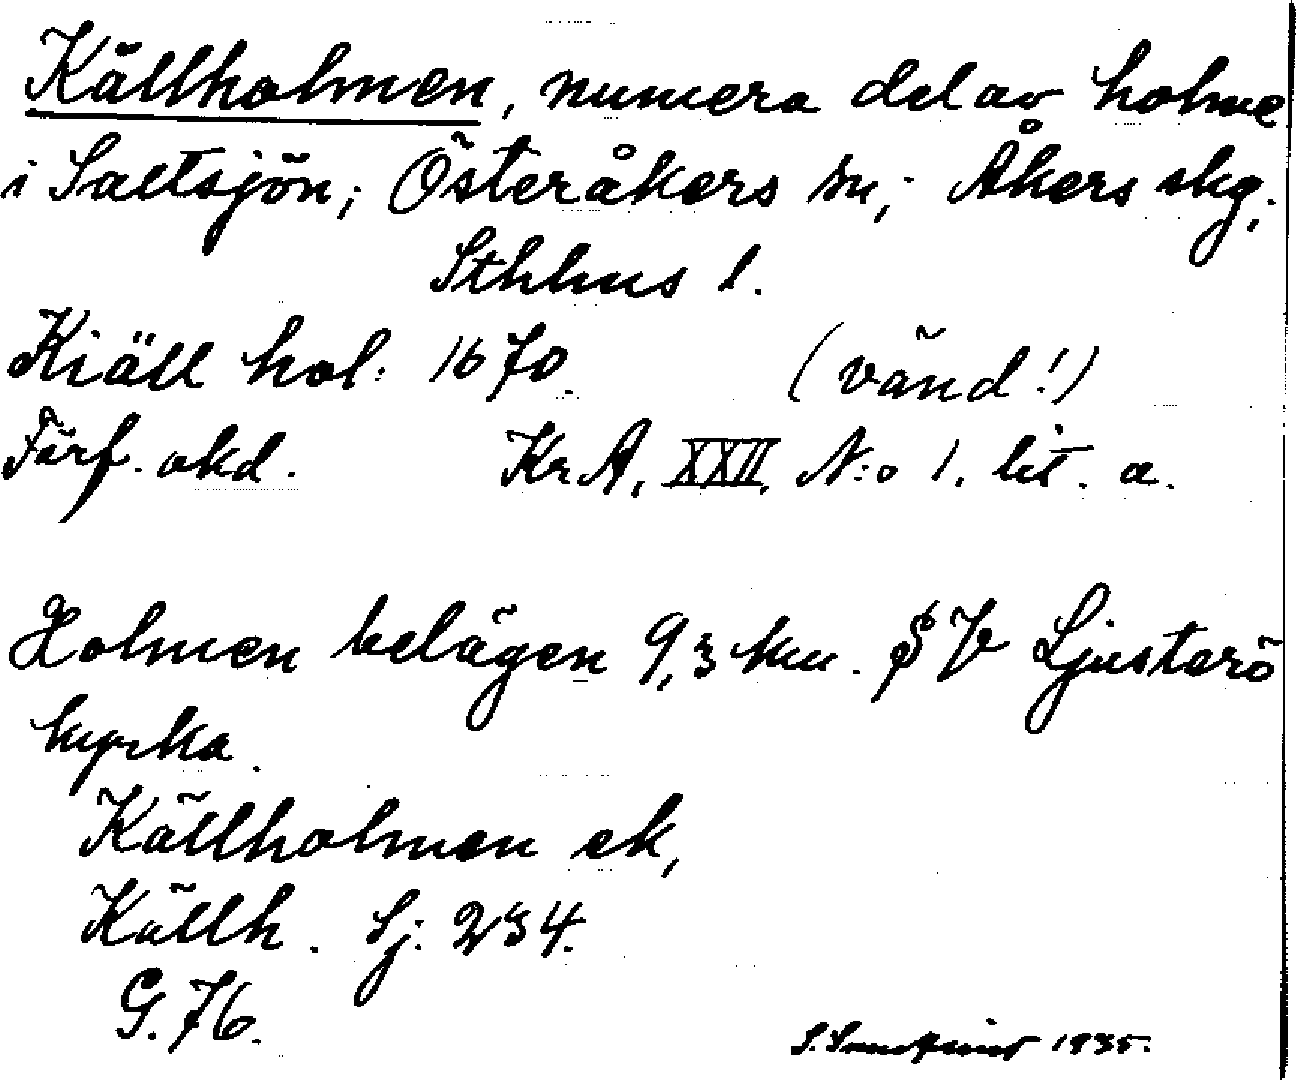 Källholmen, numera del av holme
i Saltsjön; Österåkers sn; Åkers skg;
Sthlms l.
Kiäll hol: 1670. (vänd!)
Färf. okd. KrA, XXII, N:o 1. lit. a.
Holmen belägen 9,3 km. SV Ljusterö
kyrka.
Källholmen ek,
Källh. Sj. 234.
G. 76.
S. 1935.